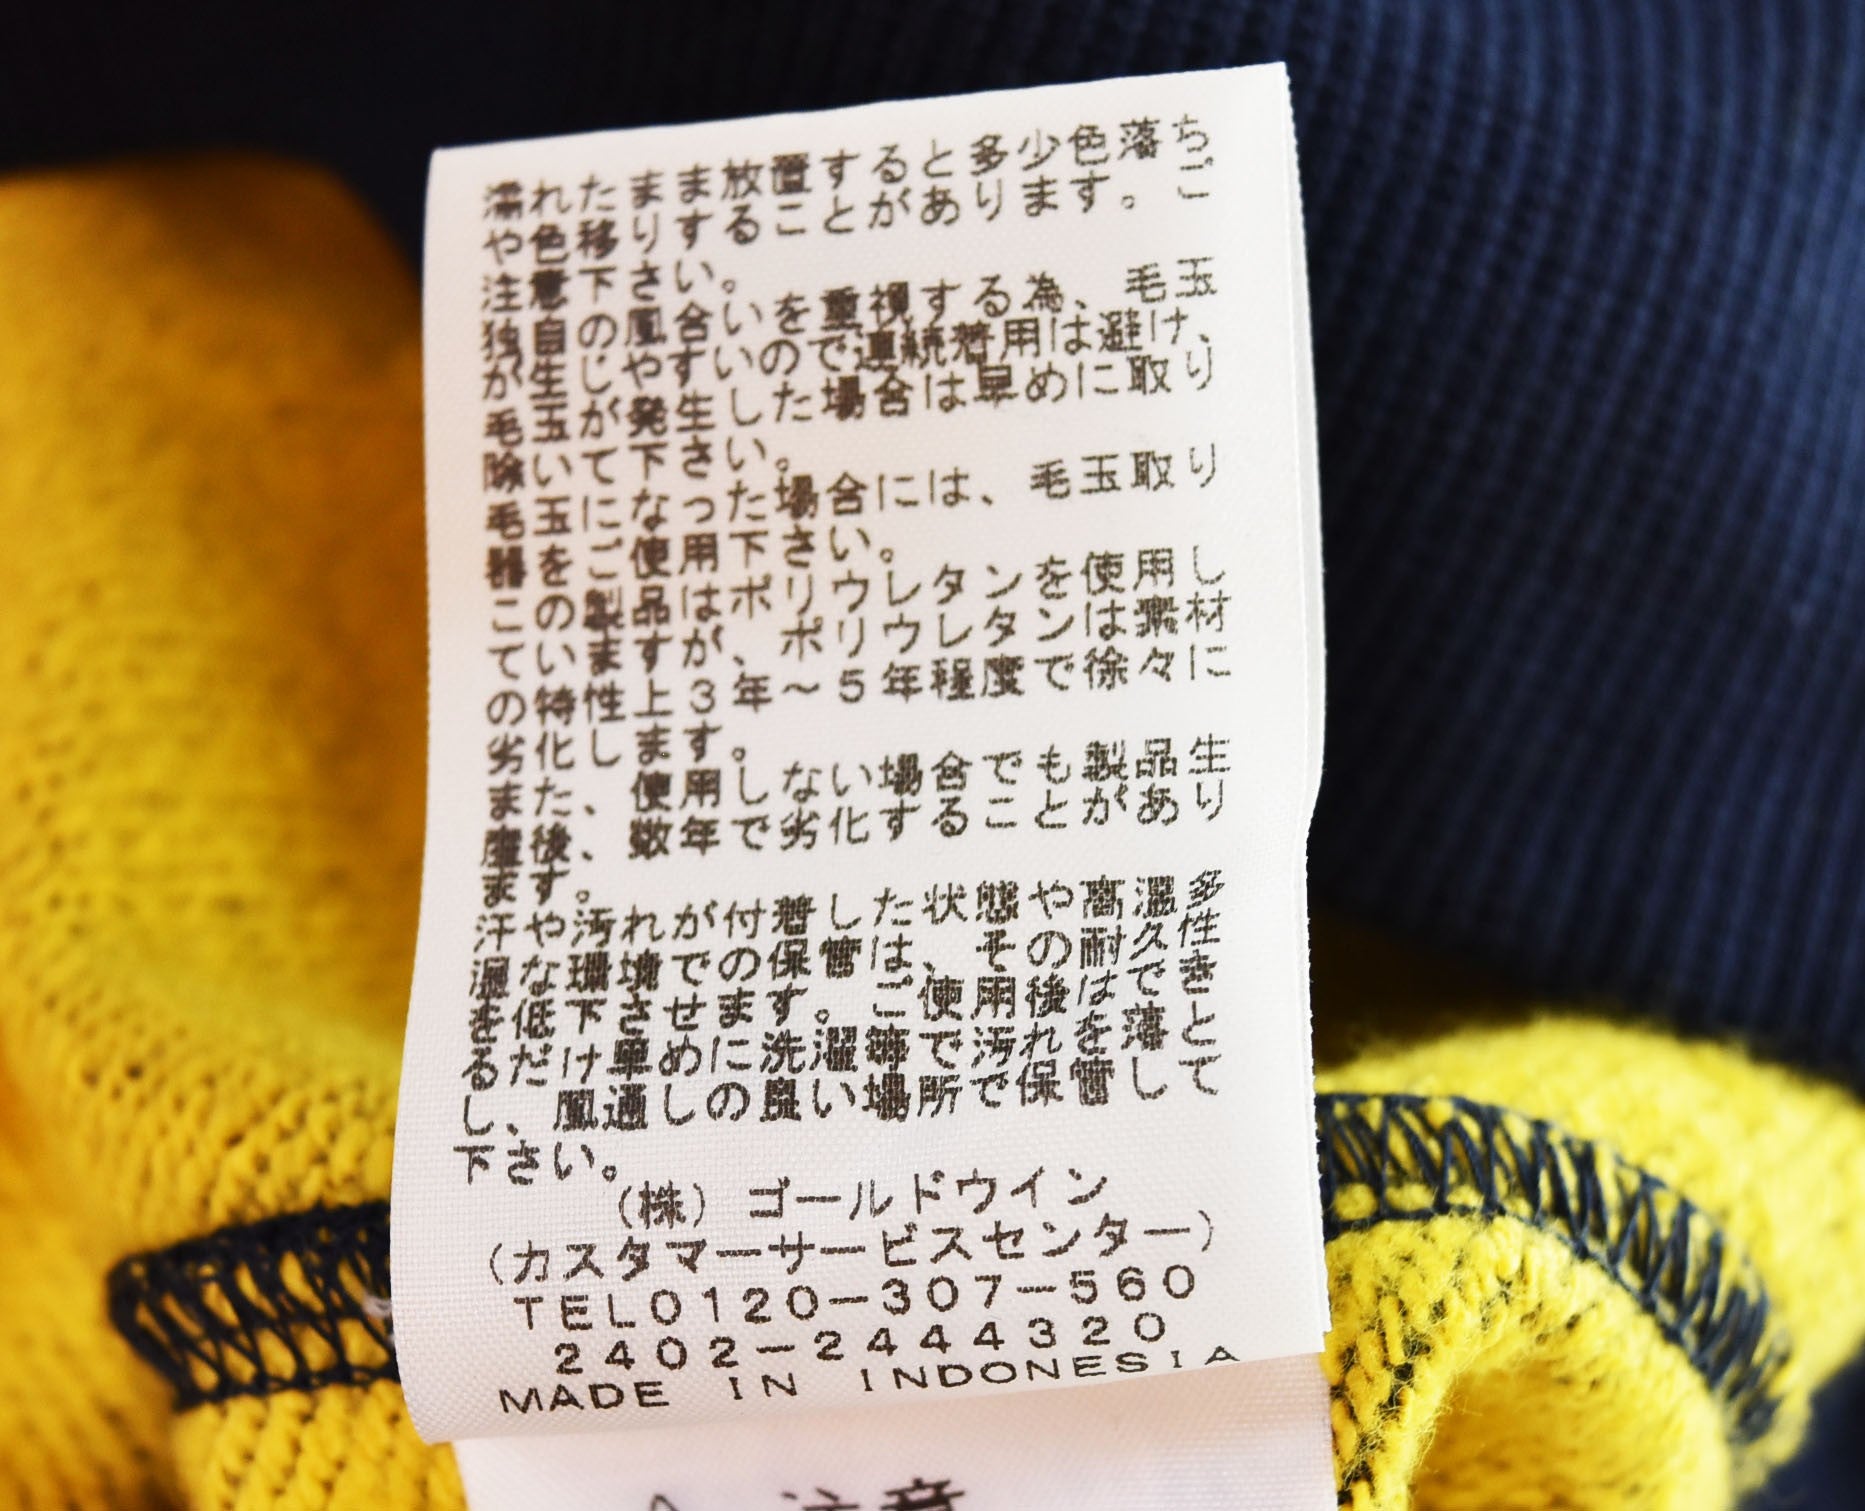 濡れたまま放置すると多少色落ち
や色移りすることがあります。ご
注意下さい。
独自の風合いを重視する為、毛玉
が生じやすいので連続着用は避け、
毛玉が発生した場合は早めに取り
除いて下さい。
毛玉になった場合には、毛玉取り
器をご使用下さい。
この製品はポリウレタンを使用し
ていますが、ポリウレタンは素材
の特性上3年～5年程度で徐々に
劣化します。
また、使用しない場合でも製品生
産後、数年で劣化することがあり
ます。
汗や汚れが付着した状態や高温多
湿な環境での保管は、その耐久性
を低下させます。ご使用後はでき
るだけ早めに洗濯等で汚れを落と
し、風通しの良い場所で保管して
下さい。
(株)ゴールドウイン
(カスタマーサービスセンター)
TEL0120-307-560
2402-2444320
MADE IN INDONESIA
注意